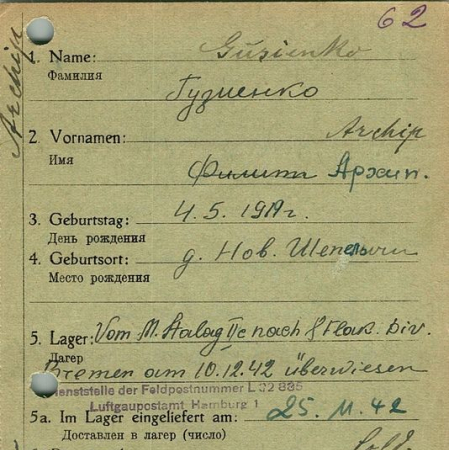 62
Archip
1. Name: Gusienko
Фамилия
Гузиенко
2. Vornamen: Archip
Имя
Филипп Архип.
3. Geburtstag: 4. 5. 1917г.
День рождения
4. Geburtsort: д. Нов. Шепеличи
Место рождения
5. Lager: Vom M. Stalag IIc nach 8 Flak. Div.
Лагер
Bremen am 10.12.42 überwiesen
Dienststelle der Feldpostnummer L 32 835
Luftgaupostamt Hamburg 1
5a. Im Lager eingeliefert am: 25. 11. 42
Доставлен в лагер (число)